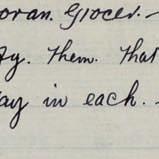 oran. Grocer. —
fy. Them. That
ay in each. —